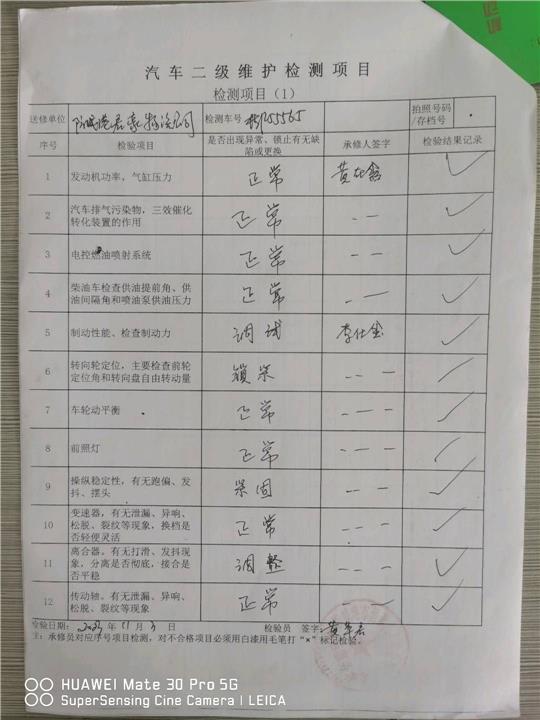 汽车二级维护检测项目
检测项目（1）
送修单位 检测车号 拍照号码/存档号
序号 检验项目 是否出现异常、锁止有无缺陷或更换 承修人签字 检验结果记录
1 发动机功率，气缸压力 正常 ✓
2 汽车排气污染物，三效催化转化装置的作用 正常 ✓
3 电控燃油喷射系统 正常 ✓
4 柴油车检查供油提前角、供油间隔角和喷油泵供油压力 正常 ✓
5 制动性能、检查制动力 调试 李仕金 ✓
6 转向轮定位，主要检查前轮定位角和转向盘自由转动量 锁紧 ✓
7 车轮动平衡 正常 ✓
8 前照灯 正常 ✓
9 操纵稳定性，有无跑偏、发抖、摆头 紧固 ✓
10 变速器，有无泄漏、异响、松脱、裂纹等现象，换档是否轻便灵活 正常 ✓
11 离合器。有无打滑、发抖现象，分离是否彻底，接合是否平稳 调整 ✓
12 传动轴。有无泄漏、异响、松脱、裂纹等现象 正常 ✓
检验日期： 年 11 月 3 日 检验员 签字：
注：承修员对应序号项目检测，对不合格项目必须用白漆用毛笔打“×”标记检验。
HUAWEI Mate 30 Pro 5G
SuperSensing Cine Camera | LEICA